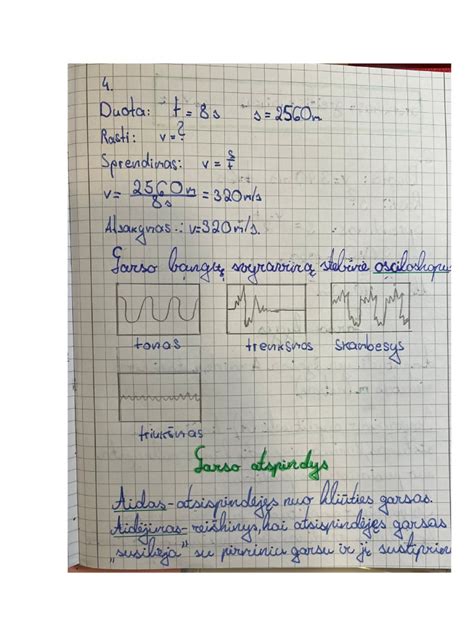 4.
Duota: t = 8s s = 2560m
Rasti: v = ?
Sprendimas: v = s/t
v = 2560m/8s = 320m/s
Atsakymas: v=320m/s.
Garso bangų sąveravimą stebime osciloskopu
tonas trenksmas skambesys
triukšmas
Garso atspindys
Aidas-atsispindėjęs nuo kliūties garsas.
Aidėjimas-reiškinys, kai atsispindėjęs garsas
„susilieja" su pirminiu garsu ir jį sustiprina